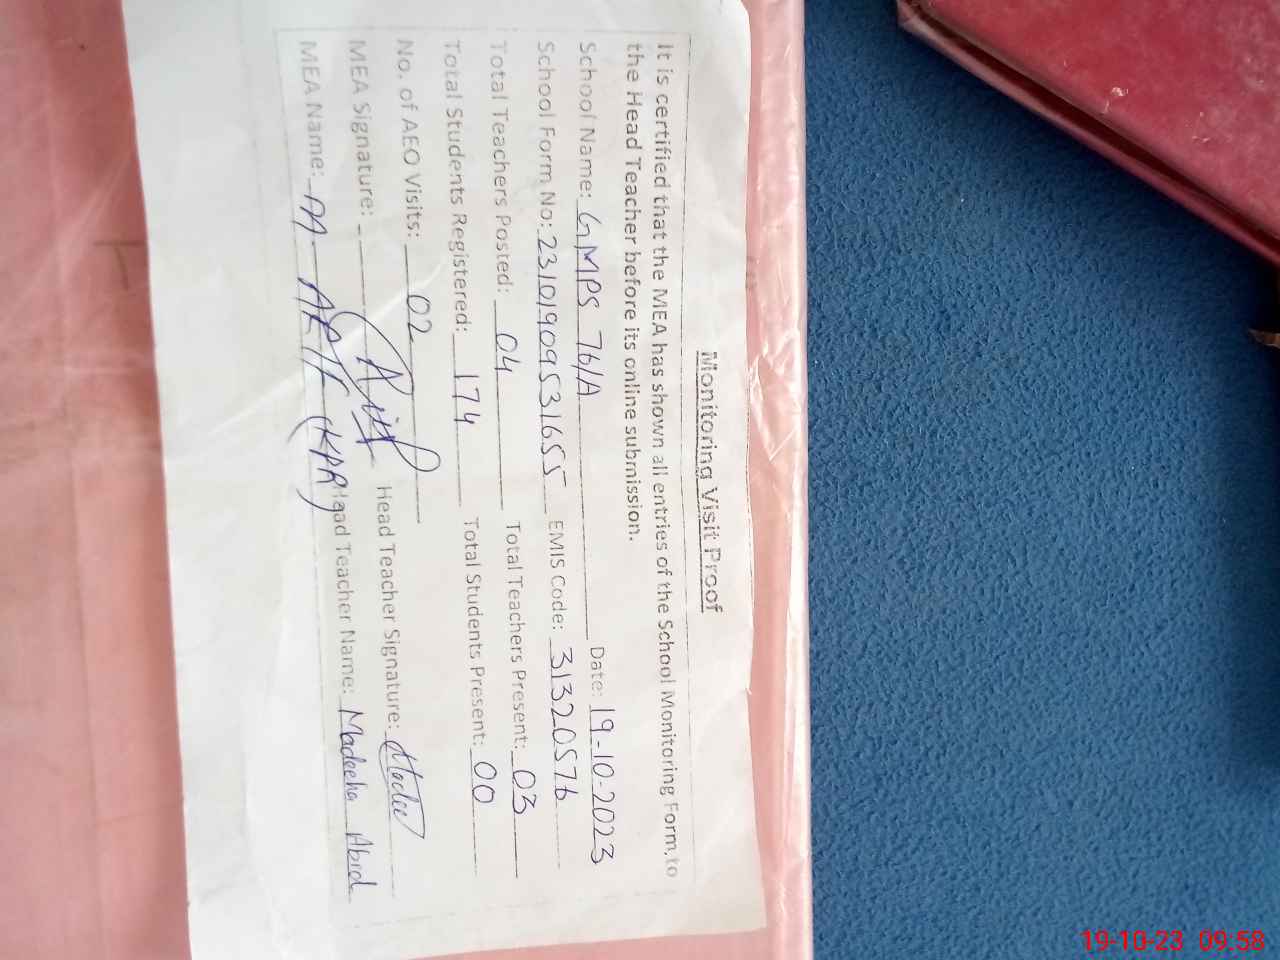 Monitoring Visit Proof
It is certified that the MEA has shown all entries of the School Monitoring Form, to
the Head Teacher before its online submission.
School Name: GMPS 76/A Date: 19-10-2023
School Form No: 23101909531655 EMIS Code: 31320576
Total Teachers Posted: 04 Total Teachers Present: 03
Total Students Registered: 174 Total Students Present: 00
No. of AEO Visits: 02
MEA Signature: Head Teacher Signature:
MEA Name: M ARIF (KPR) Head Teacher Name: Madeeha Abid
19-10-23 09:58